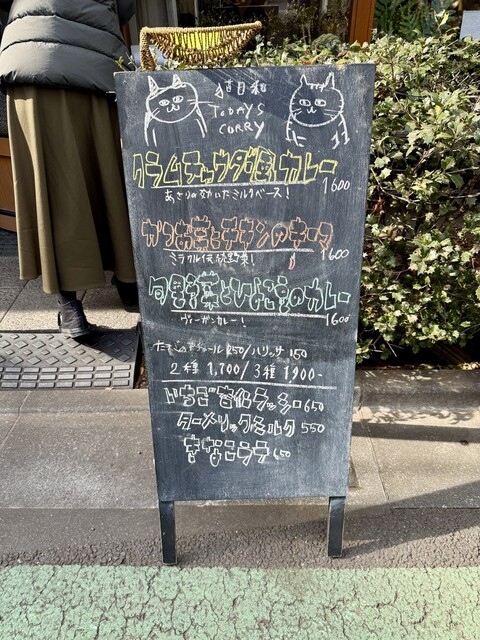 TODAYS
CURRY
クラムチャウダー風カレー
1600
あさりの効いたミルクベース!
かつお菜とチキンのキーマ
1600
ミラクル伝統野菜!
旬野菜とひよこ豆のカレー
ヴィーガンカレー!
1600
アチャール 250/ハリッサ 150
2種 1,700/3種 1,900-
いちご ラッシー 650
ターメリックミルク 550
きなこラテ 650